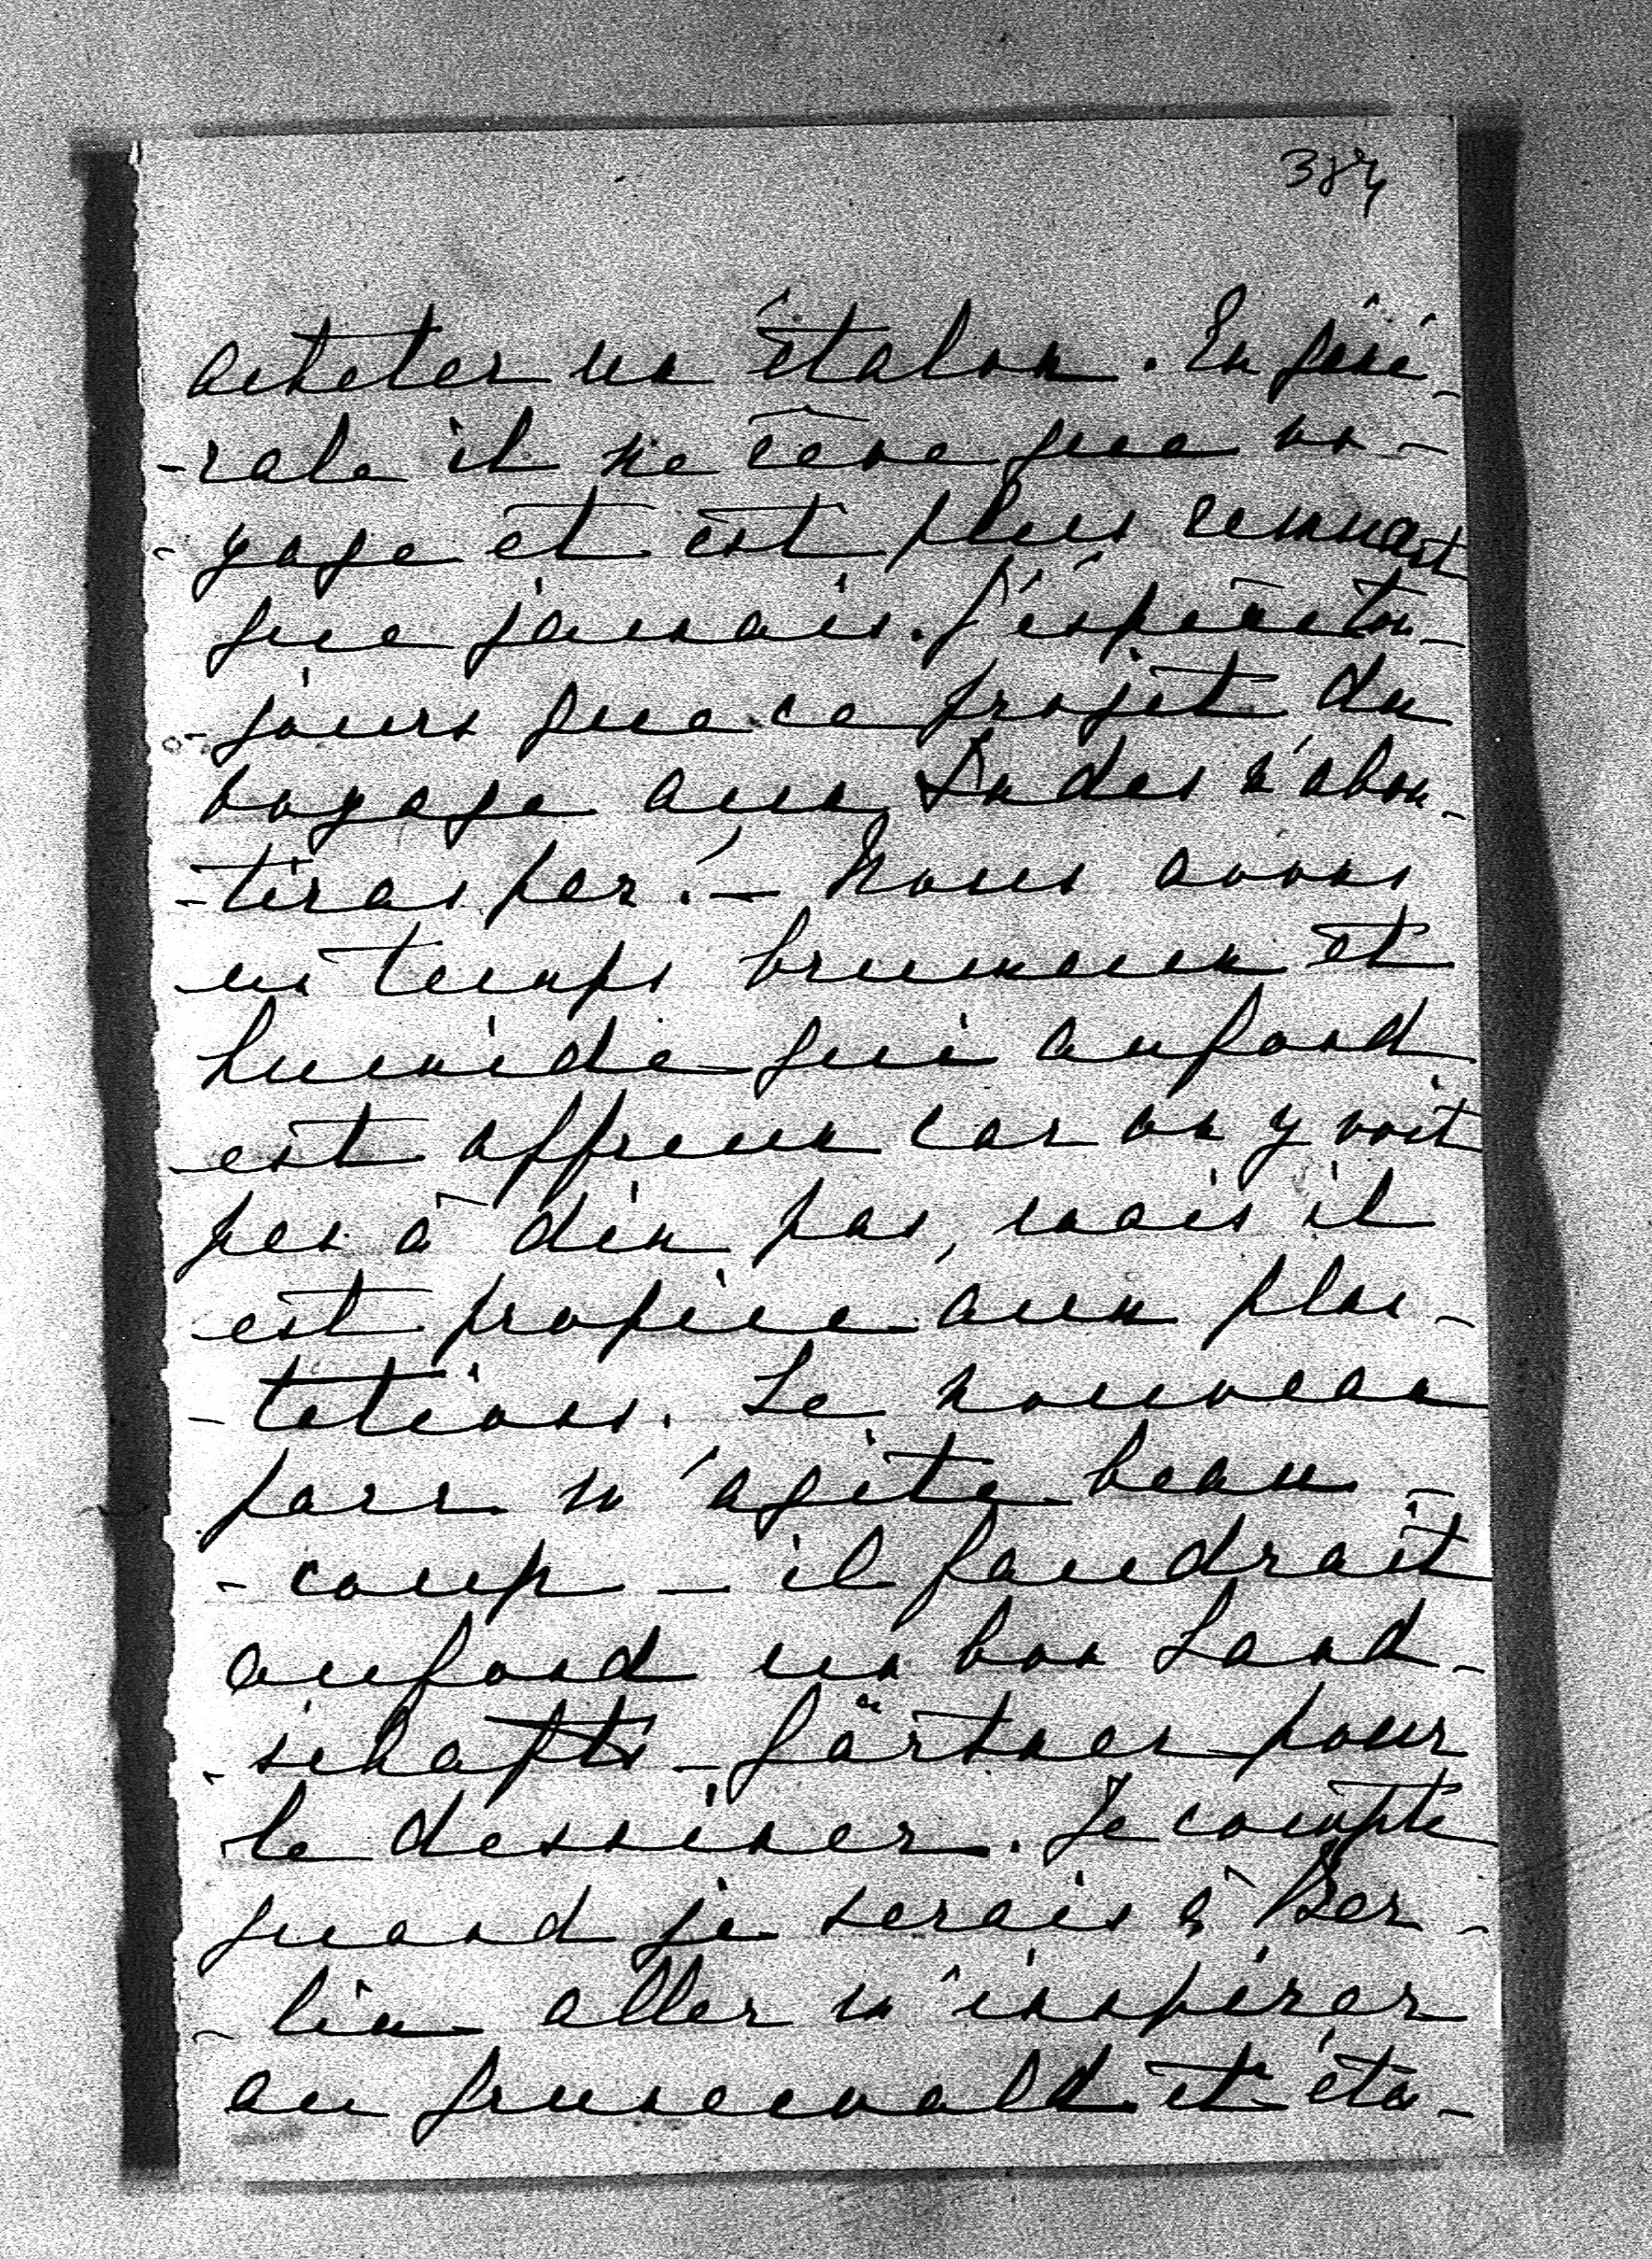 387
acheter un étalon. En géné-
-rale il ne rêve que vo-
-yage et est plus remuant
que jamais. J'éspère tou-
-jours que ce projèt du
voyage aux Indes n'abou-
-tiras pas! — Nous avons
un temps brumeux et
humide qui aufond
est affreux car on y voit
pas à dix pas, mais il
est propice aux plan-
-tations. Le nouveau
parc m'agite beau-
-coup — il faudrait
aufond un bon Land-
-schafts-gärtner pour
le dessiner. Je compte
quand je serais à Ber-
-lin aller m'inspirer
au grunewald et étu-